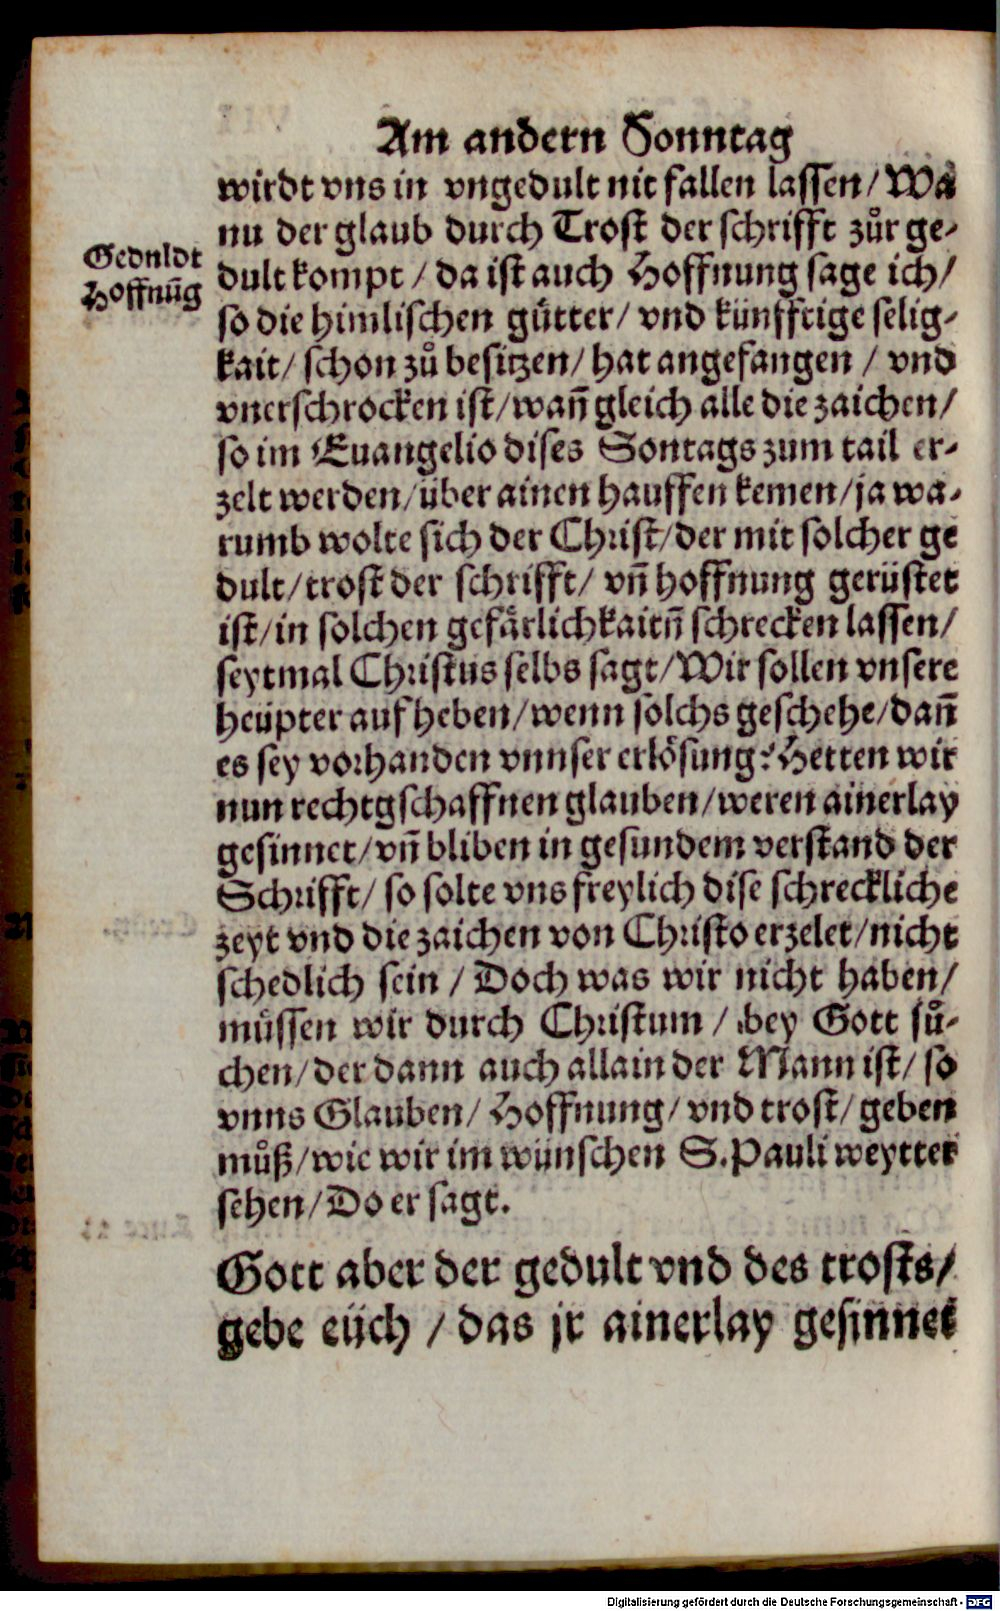 Am andern Sonntag
wirdt vns in vngedult nit fallen lassen/ Wa
nu der glaub durch Trost der schrifft zůr ge-
Geduldt
Hoffnũg
dult kompt / da ist auch Hoffnung sage ich/
so die himlischen gůtter/ vnd künfftige selig-
kait/ schon zů besitzen/ hat angefangen / vnd
vnerschrocken ist/ wañ gleich alle die zaichen/
so im Euangelio dises Sontags zum tail er-
zelt werden/ über ainen hauffen kemen/ ja wa-
rumb wolte sich der Christ/ der mit solcher ge
dult/ trost der schrifft/ vñ hoffnung gerüstet
ist/ in solchen gefärlichkaitñ schrecken lassen/
seytmal Christus selbs sagt/ Wir sollen vnsere
heüpter auf heben/ wenn solchs geschehe/ dañ
es sey vorhanden vnnser erlösung? Hetten wir
nun rechtgschaffnen glauben/ weren ainerlay
gesinnet/ vñ bliben in gesundem verstand der
Schrifft/ so solte vns freylich dise schreckliche
zeyt vnd die zaichen von Christo erzelet/ nicht
schedlich sein / Doch was wir nicht haben/
můssen wir durch Christum / bey Gott sů-
chen/ der dann auch allain der Mann ist/ so
vnns Glauben/ Hoffnung/ vnd trost/ geben
můß/ wie wir im wünschen S. Pauli weytter
sehen/ Do er sagt.
Gott aber der gedult vnd des trosts/
gebe eüch / das jr ainerlay gesinnet
Digitalisierung gefördert durch die Deutsche Forschungsgemeinschaft - DFG